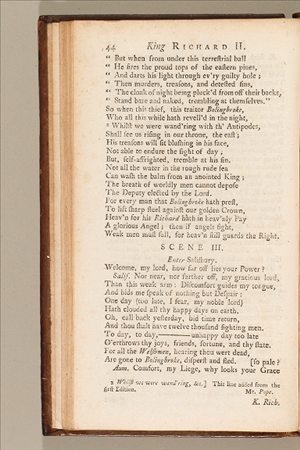 44 King RICHARD II.
" But when from under this terrestrial ball
" He fires the proud tops of the eastern pines,
" And darts his light through ev'ry guilty hole;
" Then murders, treasons, and detested sins,
" The cloak of night being pluck'd from off their backs,
" Stand bare and naked, trembling at themselves."
So when this thief, this traitor Bolingbroke,
Who all this while hath revell'd in the night,
² Whilst we were wand'ring with th' Antipodes,
Shall see us rising in our throne, the east;
His treasons will sit blushing in his face,
Not able to endure the sight of day;
But, self-affrighted, tremble at his sin.
Not all the water in the rough rude sea
Can wash the balm from an anointed King;
The breath of worldly men cannot depose
The Deputy elected by the Lord.
For every man that Bolingbroke hath prest,
To lift sharp steel against our golden Crown,
Heav'n for his Richard hath in heav'nly Pay
A glorious Angel; then if angels fight,
Weak men must fall, for heav'n still guards the Right.
SCENE III.
Enter Salisbury.
Welcome, my lord, how far off lies your Power?
Salis. Nor near, nor further off, my gracious lord,
Than this weak arm: Discomfort guides my tongue,
And bids me speak of nothing but Despair:
One day (too late, I fear, my noble lord)
Hath clouded all thy happy days on earth.
Oh, call back yesterday, bid time return,
And thou shalt have twelve thousand fighting men.
To day, to day,——unhappy day too late
O'erthrows thy joys, friends, fortune, and thy state.
For all the Welshmen, hearing thou wert dead,
Are gone to Bolingbroke, dispers'd and fled. [so pale?
Aum. Comfort, my Liege, why looks your Grace
2 Whilst we were wand'ring, &c.] This line added from the
first Edition. Mr. Pope.
K. Rich.